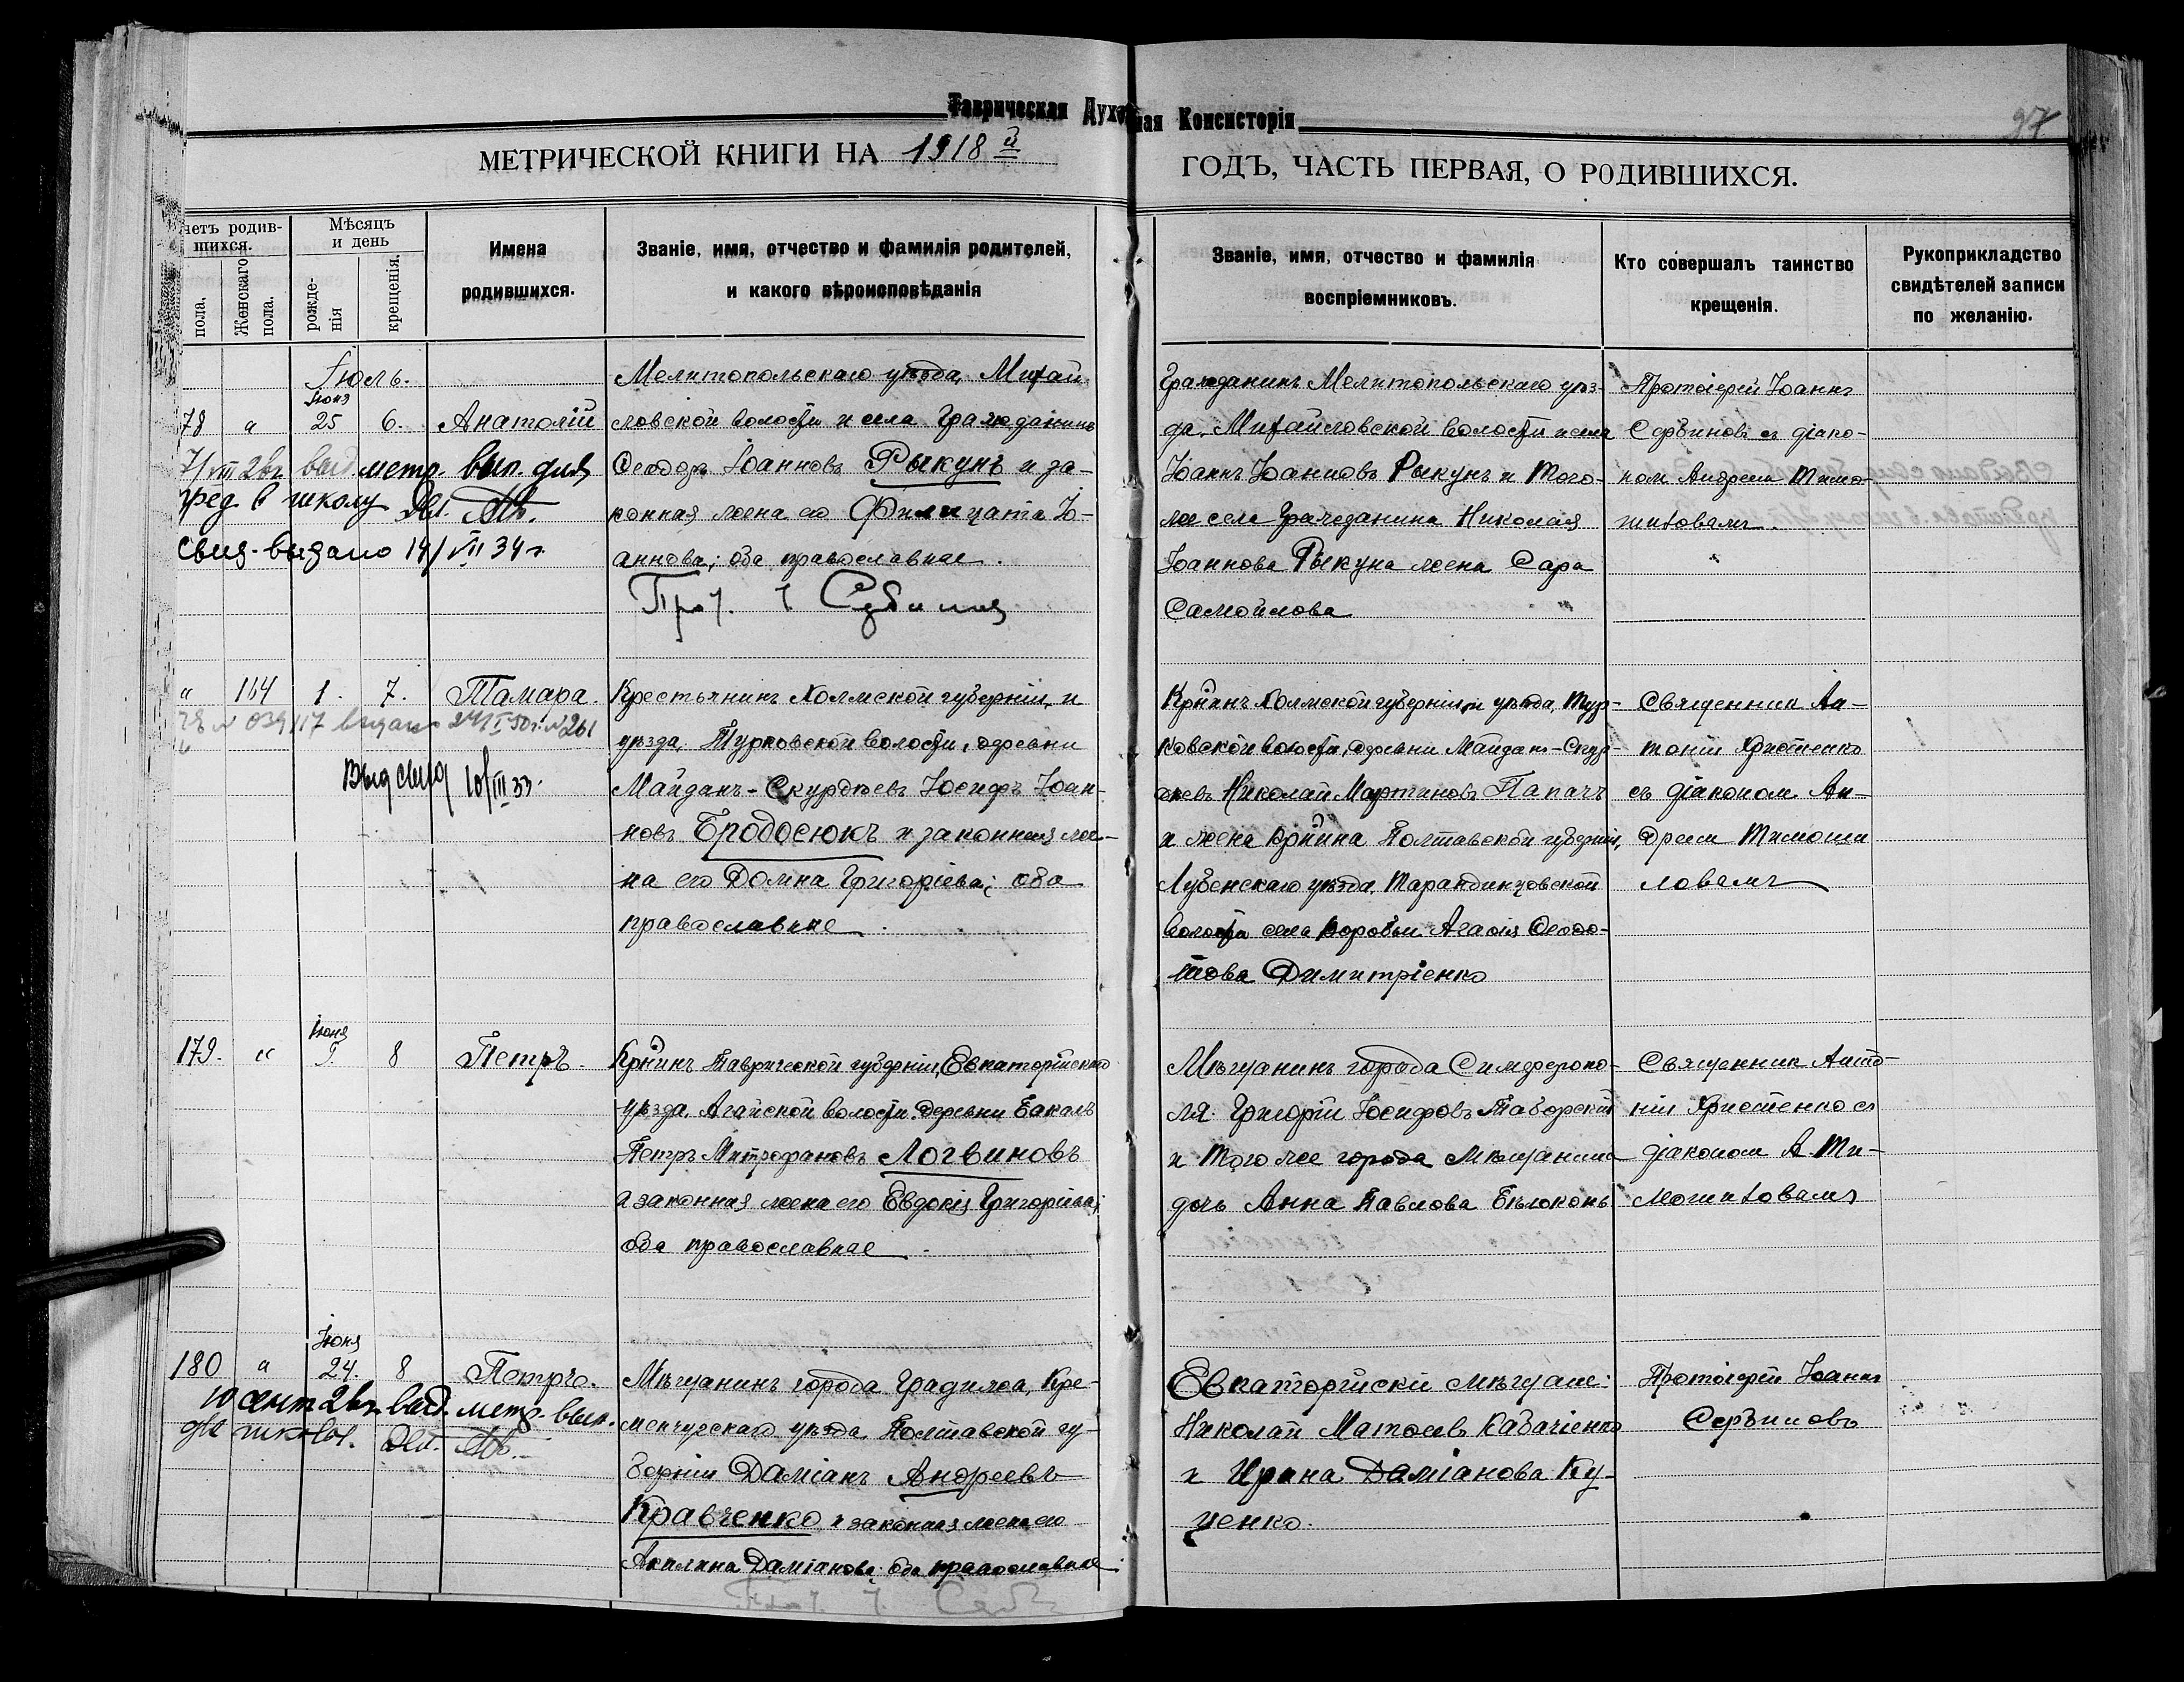 Таврическая Духовная Консисторія
97
МЕТРИЧЕСКОЙ КНИГИ НА 1918й
ГОДЪ, ЧАСТЬ ПЕРВАЯ, О РОДИВШИХСЯ.
четъ родив-
шихся.
пола.
Женскаго пола.
Мѣсяцъ
и день
рожде-
нія
крещенія.
Имена
родившихся.
Званіе, имя, отчество и фамилія родителей,
и какого вѣроисповѣданія
Званіе, имя, отчество и фамилія
воспріемниковъ.
Кто совершалъ таинство
крещенія.
Рукоприкладство
свидѣтелей записи
по желанію.
Іюль.
Іюня
78 " 25 6. Анатолій
7/VIII 2 выд. метр. вып. для
пред. в школу
свид. выдано 14/VII 34 г.
Мелитопольскаго уѣзда, Михай-
ловской волости и села гражданинъ
Ѳеодоръ Іоанновъ Рыкунъ и за-
конная жена его Филицата Іо-
аннова; оба православные.
Прот. І
Гражданинъ Мелитопольскаго уѣз-
да, Михайловской волости и села
Іоаннъ Іоанновъ Рыкунъ и того-
же села гражданина Николая
Іоаннова Рыкуна жена Сара
Самойлова
Протоіерей Іоаннъ
Сербиновъ съ діако-
ном Андреем Тимо-
" 164 1. 7. Тамара.
039117 выдано 261
Выд свид 10/III 33.
Крестьянинъ Холмской губерніи и
уѣзда, Турковской волости, деревни
Майданъ-Скурдіевъ Іосифъ Іоан-
новъ Бродосюкъ и законная же-
на его Домна Григоріева; оба
православные.
Кр-нинъ Холмской губерніи и уѣзда, Тур-
ковской волости, деревни Майданъ-Скур-
діевъ Николай Мартиновъ Папачъ
и жена кр-нина Полтавской губерніи,
Лубенскаго уѣзда, Тарандинцовской
волости села Агафія Ѳеодо-
това Димитріенко
Священник Ан-
тоній Христенко
съ діаконом Ан-
дреем
Іюня
179. " 8 Петръ.
Кр-нинъ Таврической губерніи, Евпаторійскаго
уѣзда, Агайской волости, деревни Бакалъ
Петръ Митрофановъ Логвиновъ
и законная жена его Евдокія Григоріева;
оба православные.
Мѣщанинъ города Симферопо-
ля Григорій Іосифовъ Таборскій
и того же города мѣщанина
дочь Анна Павлова Бѣлоконь
Священник Анто-
ній Христенко съ
діаконом А. Ти-
Іюня
180 " 24. 8 Петръ.
10 сент 2 выд. метр. вып.
для школы.
Мѣщанинъ города Градижса, Кре-
менчугскаго уѣзда, Полтавской гу-
берніи Даміанъ Андреевъ
Кравченко и законная жена его
Акилина Даміанова; оба православные
Евпаторійскіе мѣщане:
Николай Матѳеевъ Кабаченко
и Ирина Даміанова Ку-
ценко.
Протоіерей Іоаннъ
Сербиновъ